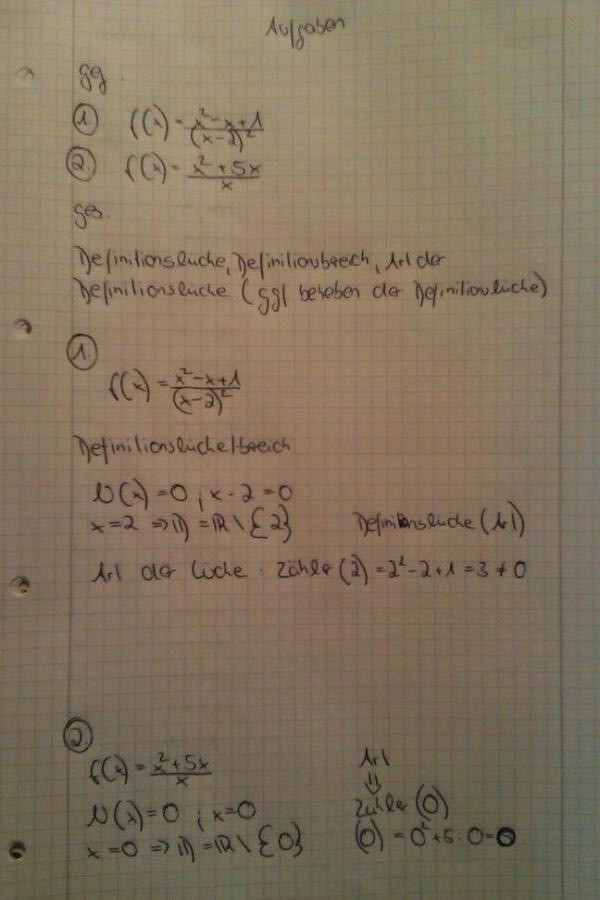 Aufgaben
gg.
1. f(x) = x² - x + 1 / (x-2)²
2. f(x) = x² + 5x / x
ges.
Definitionslücke, Definitionbereich, Art der
Definitionslücke (ggf beheben der Definitionlücke)
1.
f(x) = x² - x + 1 / (x-2)²
Definitionslücke/bereich
N(x) = 0 ; x - 2 = 0
x = 2 => D = ℝ \ {2} Definitionslücke (Art)
Art der Lücke : Zähler (2) = 2² - 2 + 1 = 3 ≠ 0
2.
f(x) = x² + 5x / x Art
⇓
N(x) = 0 ; x = 0 Zähler (0)
x = 0 => D = ℝ \ {0} (0) = 0² + 5 · 0 = 0